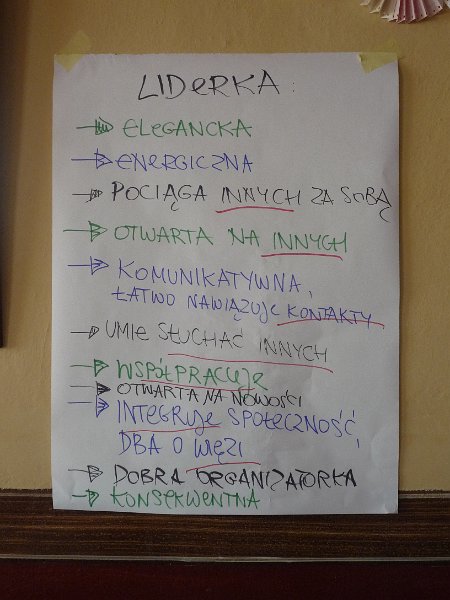 LIDERKA:
ELEGANCKA
ENERGICZNA
POCIĄGA INNYCH ZA SOBĄ
OTWARTA NA INNYCH
KOMUNIKATYWNA,
ŁATWO NAWIĄZUJE KONTAKTY
UMIE SŁUCHAĆ INNYCH
WSPÓŁPRACUJE
OTWARTA NA NOWOŚCI
INTEGRUJE SPOŁECZNOŚĆ,
DBA O WIĘZI
DOBRA ORGANIZATORKA
KONSEKWENTNA